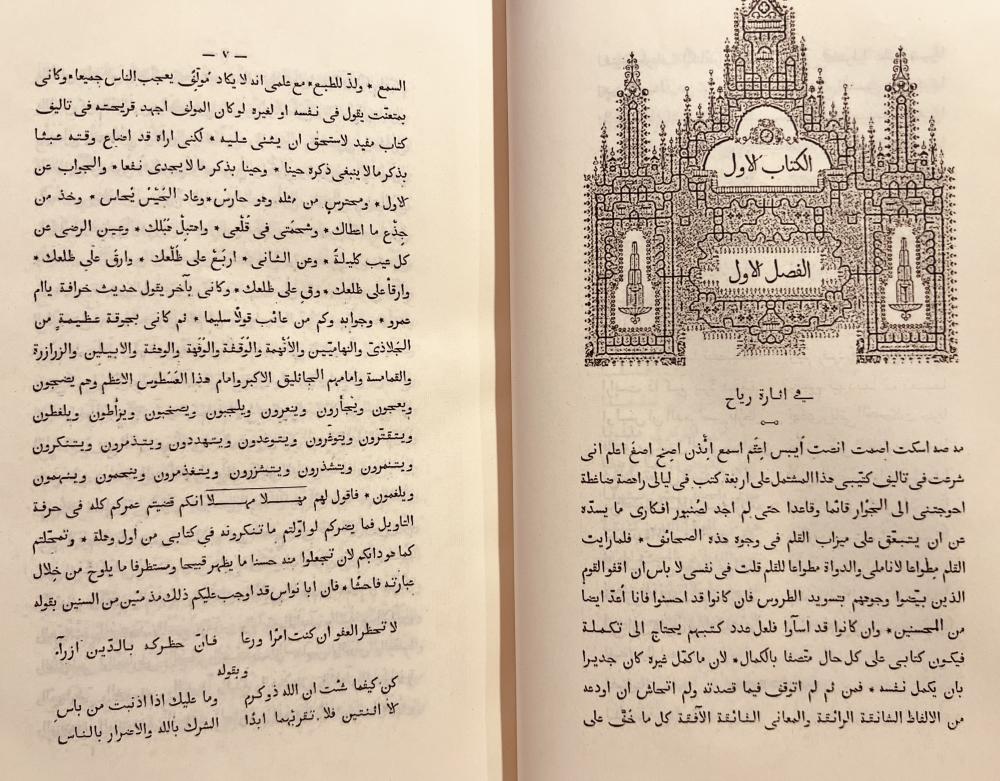 الكتاب الاول
الفصل الاول
في اثارة رياح
مه صه اسكت اصمت انصت آيبس اعقم اسمع ائذن اصخ اصغ اعلم انى
شرعت فى تاليف كتيبى هذا المشتمل على اربعة كتب فى ليالى راهصة ضاغطة
احوجتنى الى الجوار قائما وقاعدا حتى لم اجد لصنبور افكارى ما يسدّه
عن ان يتبعّق على ميزاب القلم فى وجوه هذه الصحائف * فلما رايت
القلم مطواعا لاناملى والدواة مطواعا للقلم قلت فى نفسى لا باس ان اقفو القوم
الذين بيّضوا وجوههم بتسويد الطروس فان كانوا قد احسنوا فانا أعدّ ايضا
من المحسنين * وان كانوا قد اسآوا فلعل عدد كتبهم يحتاج الى تكملة
فيكون كتابى على كل حال متصفا بالكمال * لان ما كمّل غيره كان جديرا
بان يكمل نفسه * فمن ثم لم اتوقف فيما قصدته ولم اتحاش ان اودعه
من الالفاظ الشائقة الرائقة والمعانى الفائقة الآفقة كل ما خفّ على
— ٧ —
السمع * ولذّ للطبع * مع علمى انه لا يكاد مولّف يعجب الناس جميعا * وكانى
بمتعنّت يقول فى نفسه او لغيره لو كان المولف اجهد قريحته فى تاليف
كتاب مفيد لاستحق ان يثنى عليه * لكنى اراه قد اضاع وقته عبثا
بذكر ما لا ينبغى ذكره حينا * وحينا بذكر ما لا يجدى نفعا * والجواب عن
الاول * ومحترس من مثله وهو حارس * وعاد الحيس يُحاس * وخذ من
جذع ما اعطاك * وشحمتى فى قلعى * واحتبل حَبلك * وعين الرضى عن
كل عيب كليلةٌ * وعن الثانى * اربَعْ على ظَلْعك * وارق على ظلعك *
وارقأ على ظلعك * وقِ على ظلعك * وكانى بآخر يقول حديث خرافة ياام
عمرو * وجوابه وكم من عائب قولا سليما * ثم كانى بجوقة عظيمة من
الجلاذى والنهاميين والأَنهمة والوَقفة والوَفهة والوهفة والابيلين والزرازرة
والقمامسة وامامهم الجاثليق الاكبر وامام هذا العسطوس الاعظم وهم يضجون
ويعجون ويجأرون وينعرون ويلجبون ويصخبون ويزأطون ويلغطون
ويتقتّرون ويتوثرون ويتوعدون ويتهددون ويتذمرون ويتنكرون
ويتنمرون ويتشذرون ويتشزرون ويتغذمرون ويتحمون وينهمون
ويلغمون * فاقول لهم مهـــلا مهـــلا انكم قضيتم عمركم كله فى حرفة
التاويل فما يضركم لو اوّلتم ما تنكرونه فى كتابى من اول وهلة * وتمحّلتم
كما هو دابكم لان تجعلوا منه حسنا ما يظهر قبيحا ومستظرفا ما يلوح من خلال
عبارته فاحشا * فان ابا نواس قد اوجب عليكم ذلك مذ مئين من السنين بقوله
لا تحظر العفو ان كنت امرًا ورعا فانّ حظركه بالدّين ازرآء
وبقوله
كن كيفما شئت ان الله ذو كرم وما عليك اذا اذنبت من باس
الا اثنتين فلا تقربهما ابدًا الشرك بالله والاضرار بالناس